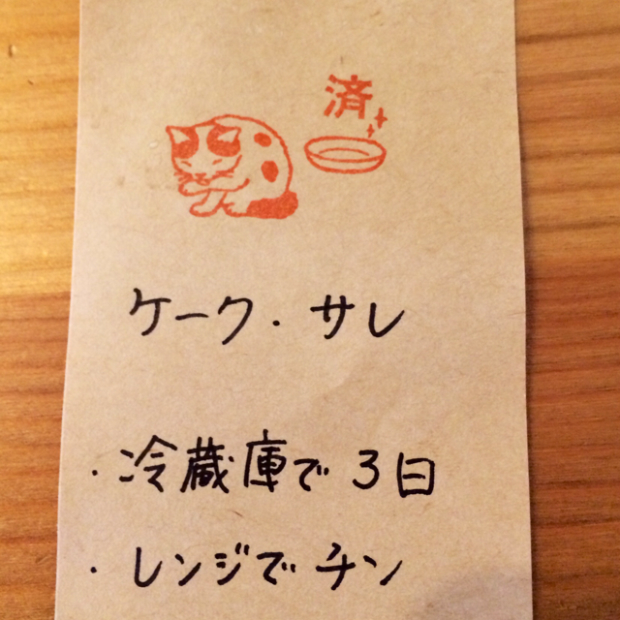 済
ケーク・サレ
・冷蔵庫で3日
・レンジでチン